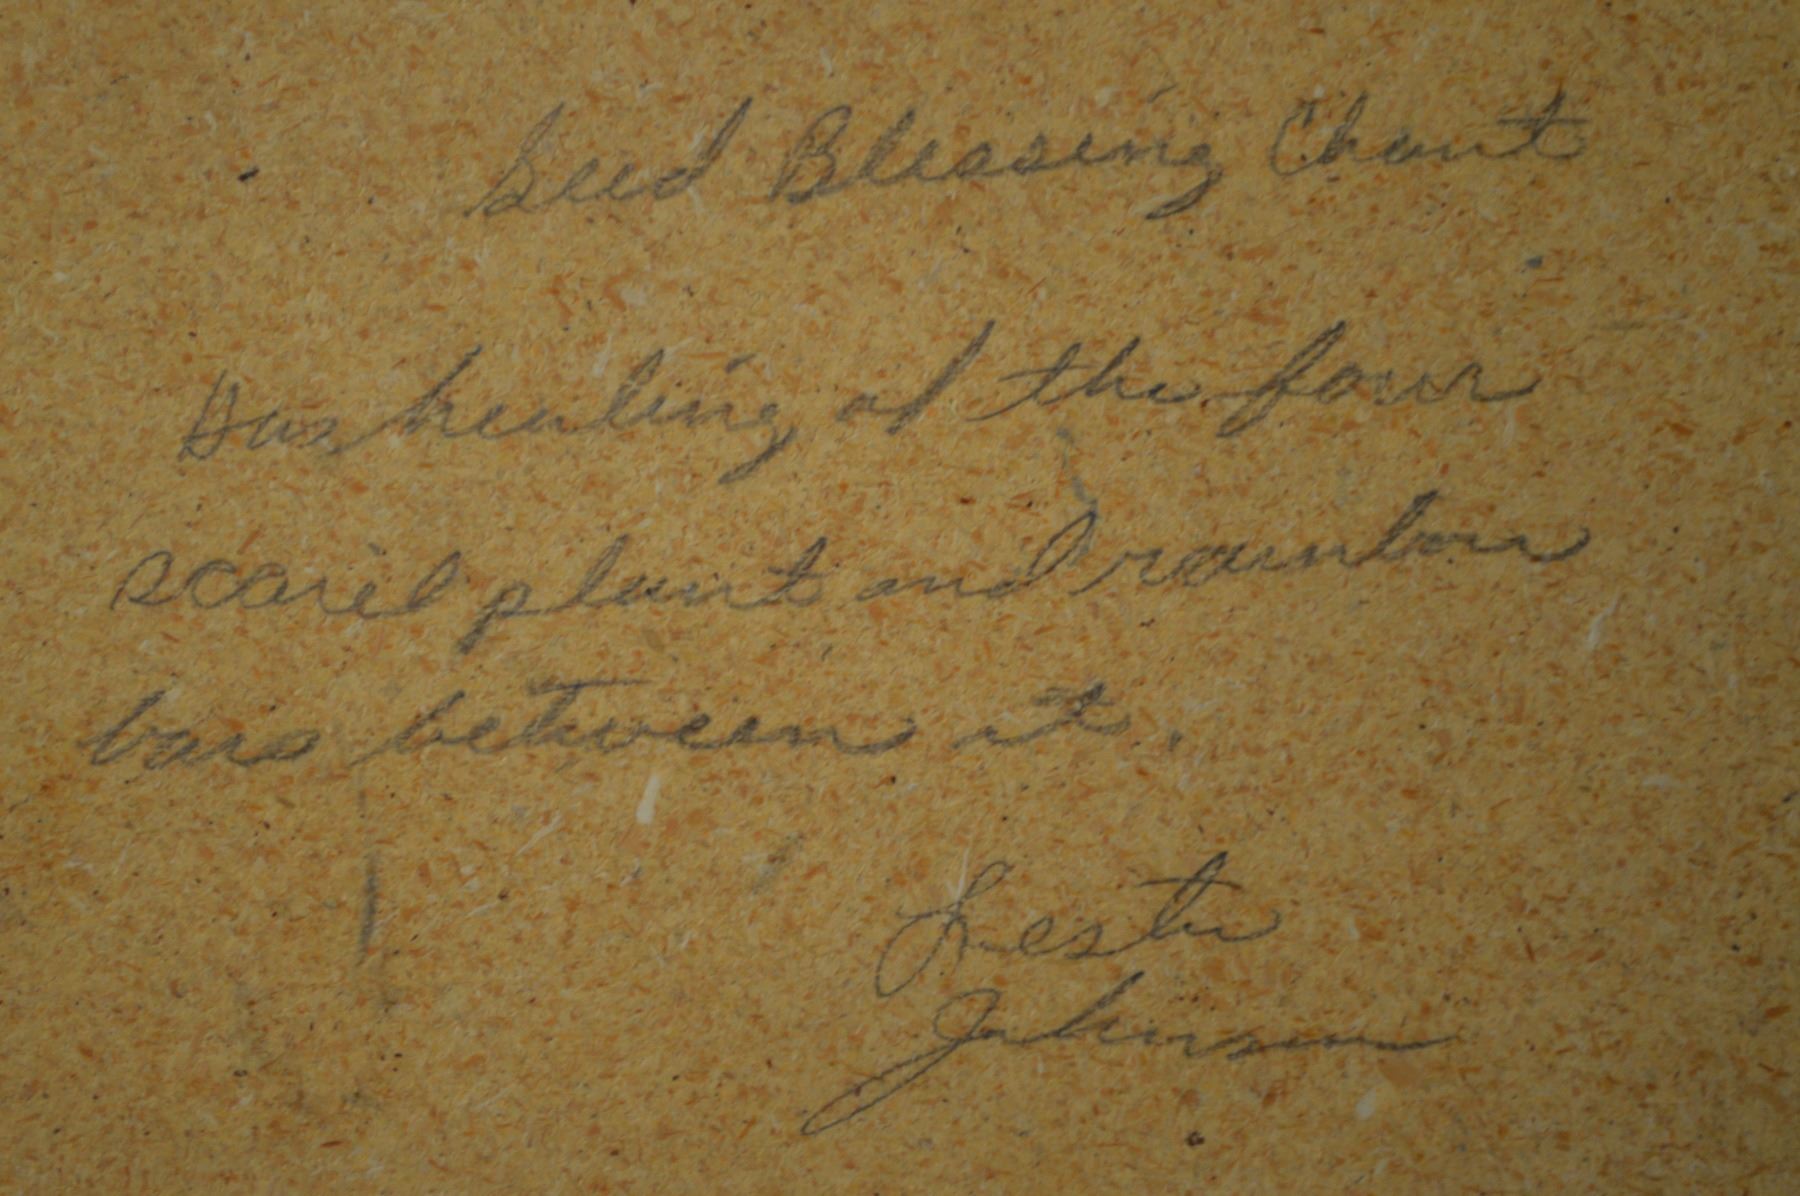 Seed Blessing Chant
Has healing of the four
scared plant and rainbow
bars between it.
Lester
Johnson